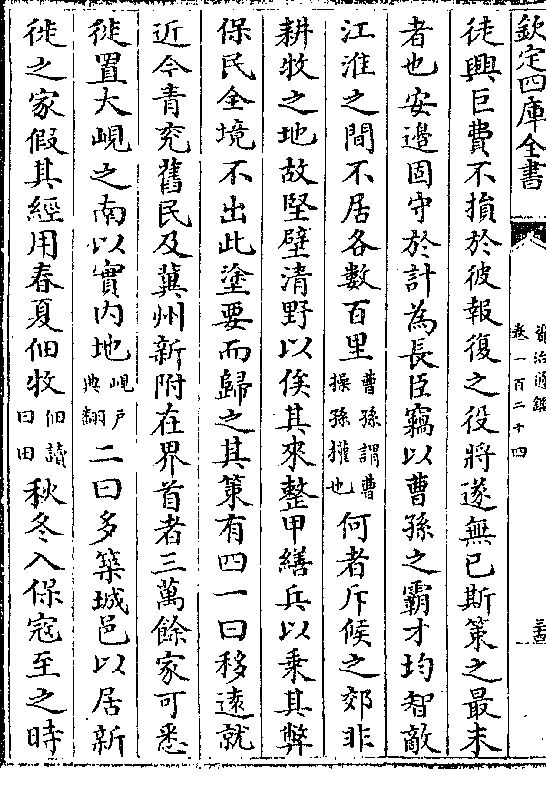 欽定四庫全書
資治通鑑
卷一百二十四
三
徒興巨費不損於彼報復之役將遂無已斯策之最末
者也安邊固守於計為長臣竊以曹孫之霸才均智敵
江淮之間不居各數百里曹孫謂曹操孫權也何者斥候之郊非
耕牧之地故堅壁清野以俟其來整甲繕兵以乘其弊
保民全境不出此塗要而歸之其策有四一曰移遠就
近今青兖舊民及冀州新附在界首者三萬餘家可悉
徙置大峴之南以實内地峴戶典翻二曰多築城邑以居新
徙之家假其經用春夏佃牧佃讀曰田秋冬入保寇至之時